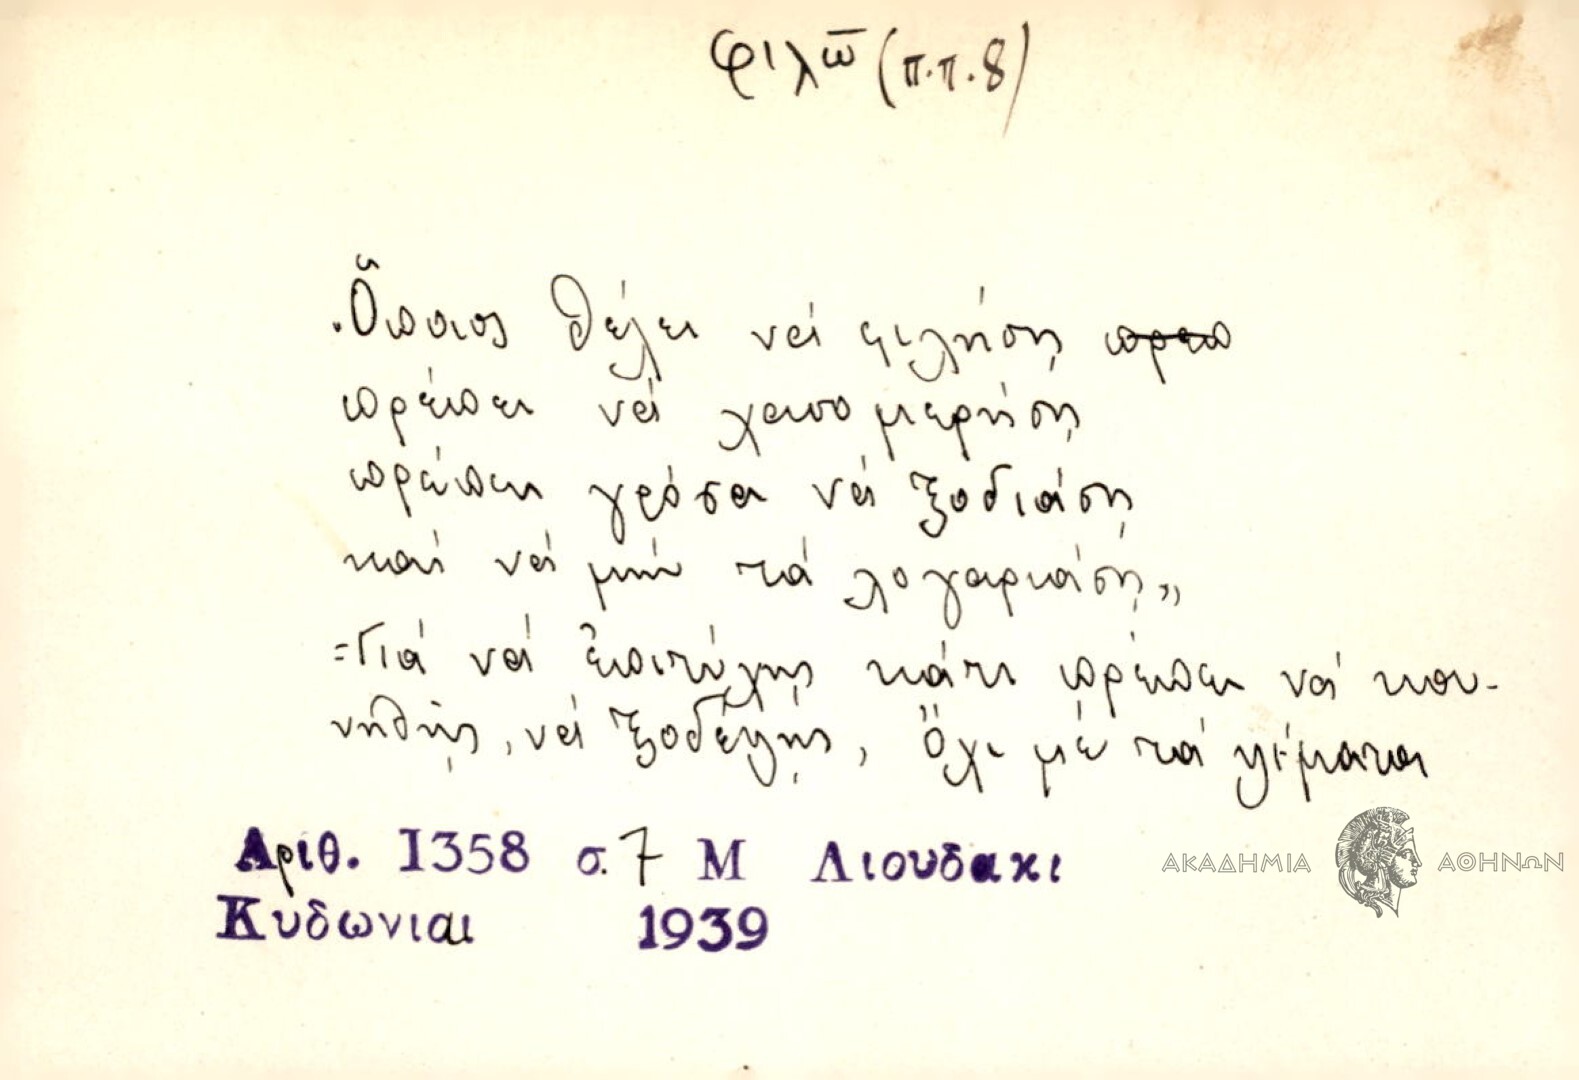 φιλῶ (π.π. 8)
Ὅποιος θέλει νά φιλήση πρεπ
πρέπει νά χασομερήση
πρέπει γρόσα νά ξοδιάση
καί νά μήν τά λογαριάση„
=Γιά νά ἐπιτύχης κάτι πρέπει νά κου-
νηθῆς, νά ξοδέψης, ὄχι μέ τά ψέματα
Αριθ. 1358 σ. 7 Μ Λιουδακι
Κυδωνιαι 1939
ΑΚΑΔΗΜΙΑ ΑΘΗΝΩΝ